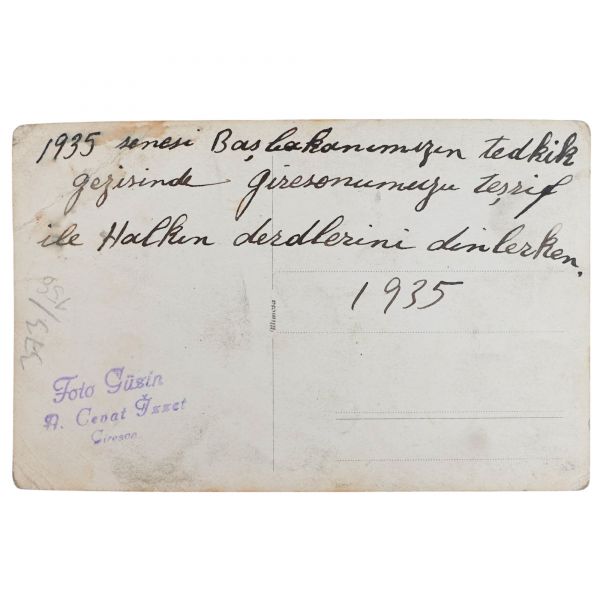 1935 senesi Başbakanımızın tedkik
gezisinde Giresonumuzu teşrif
ile Halkın derdlerini dinlerken.
1935
Foto Güzin
A. Cevat İzzet
Gireson